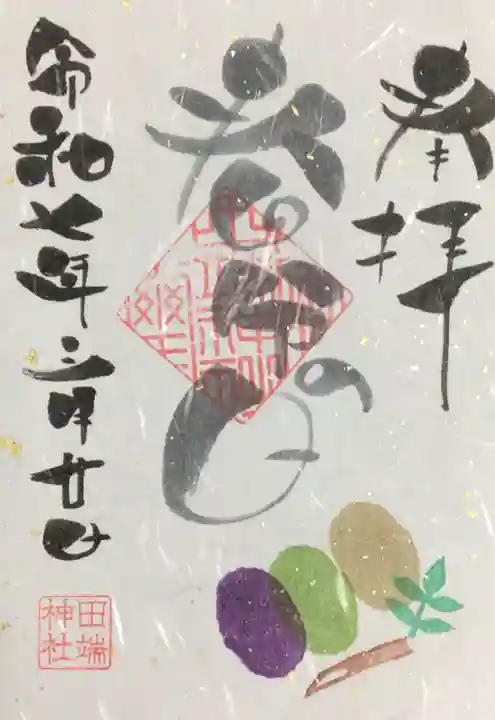 奉拝
春分の日
令和七年三月廿日
田端
神社